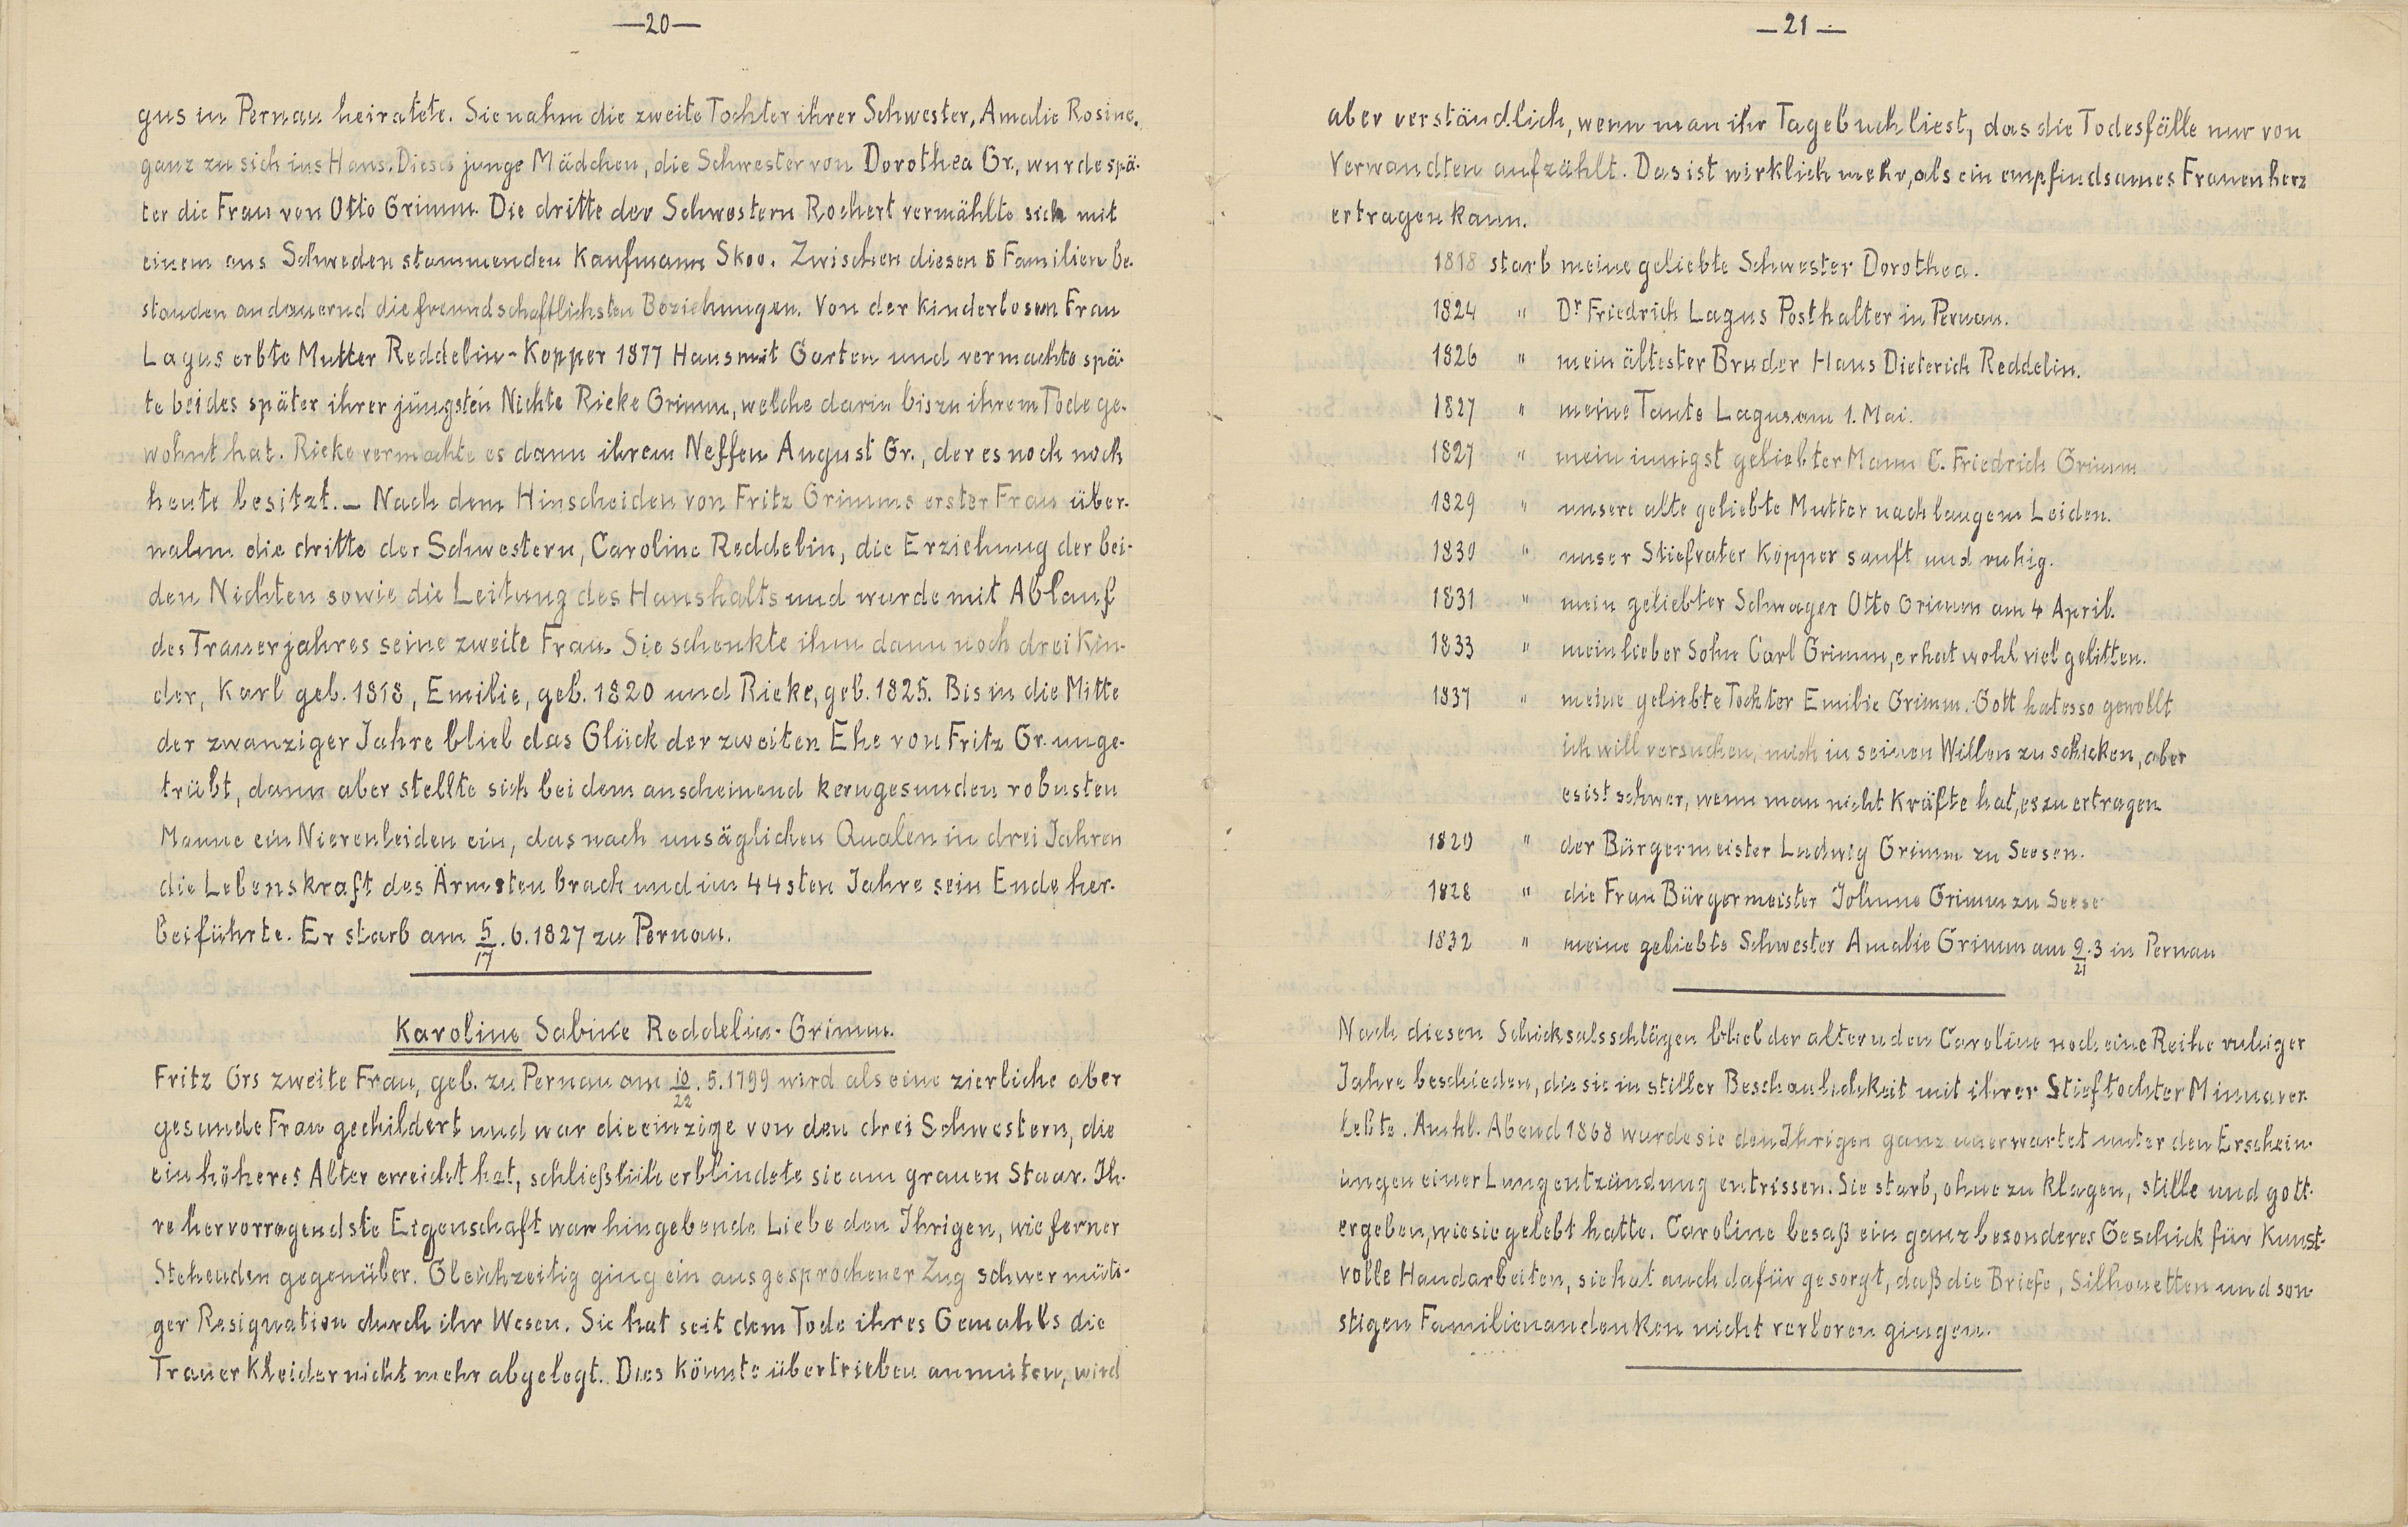 —20—
gus in Pernau heiratete. Sie nahm die zweite Tochter ihrer Schwester, Amalie Rosine,
ganz zu sich ins Haus. Dieses junge Mädchen, die Schwester von Dorothea Gr., wurde spä-
ter die Frau von Otto Grimm. Die dritte der Schwestern Rochert vermählte sich mit
einem aus Schweden stammenden Kaufmann Skoo. Zwischen diesen 5 Familien be-
standen andauernd die freundschaftlichsten Beziehungen. Von der kinderlosen Frau
Lagus erbte Mutter Reddelin-Kopper 1877 Haus mit Garten und vermachte spä-
te beides später ihrer jüngsten Nichte Rieke Grimm, welche darin bis zu ihrem Tode ge-
wohnt hat. Rieke vermachte es dann ihrem Neffen August Gr., der es noch noch
heute besitzt. — Nach dem Hinscheiden von Fritz Grimms erster Frau über-
nahm die dritte der Schwestern, Caroline Reddelin, die Erziehung der bei-
den Nichten sowie die Leitung des Haushalts und wurde mit Ablauf
des Trauerjahres seine zweite Frau. Sie schenkte ihm dann noch drei Kin-
der, Karl geb. 1818, Emilie, geb. 1820 und Rieke, geb. 1825. Bis in die Mitte
der zwanziger Jahre blieb das Glück der zweiten Ehe von Fritz Gr. unge-
trübt, dann aber stellte sich bei dem anscheinend kerngesunden robusten
Manne ein Nierenleiden ein, das nach unsäglichen Qualen in drei Jahren
die Lebenskraft des Ärmsten brach und im 44sten Jahre sein Ende her-
beiführte. Er starb am 5/17. 6. 1827 zu Pernau.
Karoline Sabine Reddelin-Grimm.
Fritz Grs zweite Frau, geb. zu Pernau am 10/22. 5. 1799 wird als eine zierliche aber
gesunde Frau gechildert und war die einzige von den drei Schwestern, die
ein höheres Alter erreicht hat, schließlich erblindete sie am grauen Staar. Ih-
re hervorragendste Eigenschaft war hingebende Liebe den Ihrigen, wie ferner
Stehenden gegenüber. Gleichzeitig ging ein ausgesprochener Zug schwermüti-
ger Resignation durch ihr Wesen. Sie hat seit dem Tode ihres Gemahls die
Trauerkleider nicht mehr abgelegt. Dies könnte übertrieben anmuten, wird
— 21 —
aber verständlich, wenn man ihr Tagebuch liest, das die Todesfälle nur von
Verwandten aufzählt. Das ist wirklich mehr, als ein empfindsames Frauenherz
ertragen kann.
1818 starb meine geliebte Schwester Dorothea.
1824 " Dr Friedrich Lagus Posthalter in Pernau.
1826 " mein ältester Bruder Hans Dieterich Reddelin.
1827 " meine Tante Lagus am 1. Mai.
1827 " mein innigst geliebter Mann C. Friedrich Grimm
1829 " unsere alte geliebte Mutter nach langem Leiden.
1830 " unser Stiefvater Kopper sanft und ruhig.
1831 " mein geliebter Schwager Otto Grimm am 4 April.
1833 " mein lieber Sohn Carl Grimm, er hat wohl viel gelitten.
1837 " meine geliebte Tochter Emilie Grimm. Gott hat es so gewollt
ich will versuchen, mich in seinen Willen zu schicken, aber
es ist schwer, wenn man nicht Kräfte hat, es zu ertragen
1820 " der Bürgermeister Ludwig Grimm zu Seesen.
1828 " die Frau Bürgermeister Johnne Grimm zu Seese
1832 " meine geliebte Schwester Amalie Grimm am 9/21. 3 in Pernau
Nach diesen Schicksalsschlägen blieb der alternden Caroline noch eine Reihe ruhiger
Jahre beschieden, die sie in stiller Beschaulichkeit mit ihrer Stieftochter Minna ver-
lebte. Am hl. Abend 1868 wurde sie den Ihrigen ganz unerwartet unter den Erschein-
ungen einer Lungentzündung entrissen. Sie starb, ohne zu klagen, stille und gott-
ergeben, wie sie gelebt hatte. Caroline besaß ein ganz besonderes Geschick für Kunst-
volle Handarbeiten, sie hat auch dafür gesorgt, daß die Briefe, Silhouetten und son-
stigen Familienandenken nicht verloren gingen.